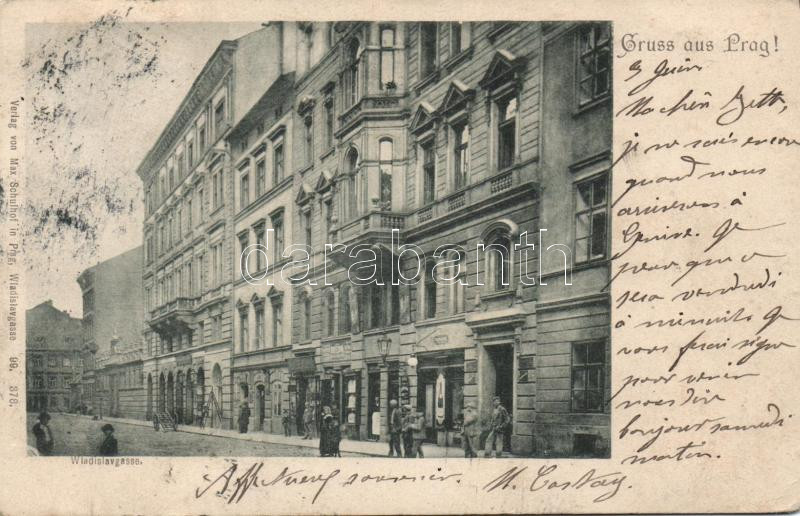 Gruss aus Prag!
5 Juin
Ma chère Betty,
je ne sais encore
quand nous
arriverons à
Genève. Je
pense que ce
sera vendredi
à minuit. Je
vous ferai signe
pour venir
nous dire
bonjour samedi
matin.
Affectueux souvenir. M.
Verlag von Max Schulhof in Prag, Wladislavgasse 99. 378.
darabanth
Wladislavgasse.